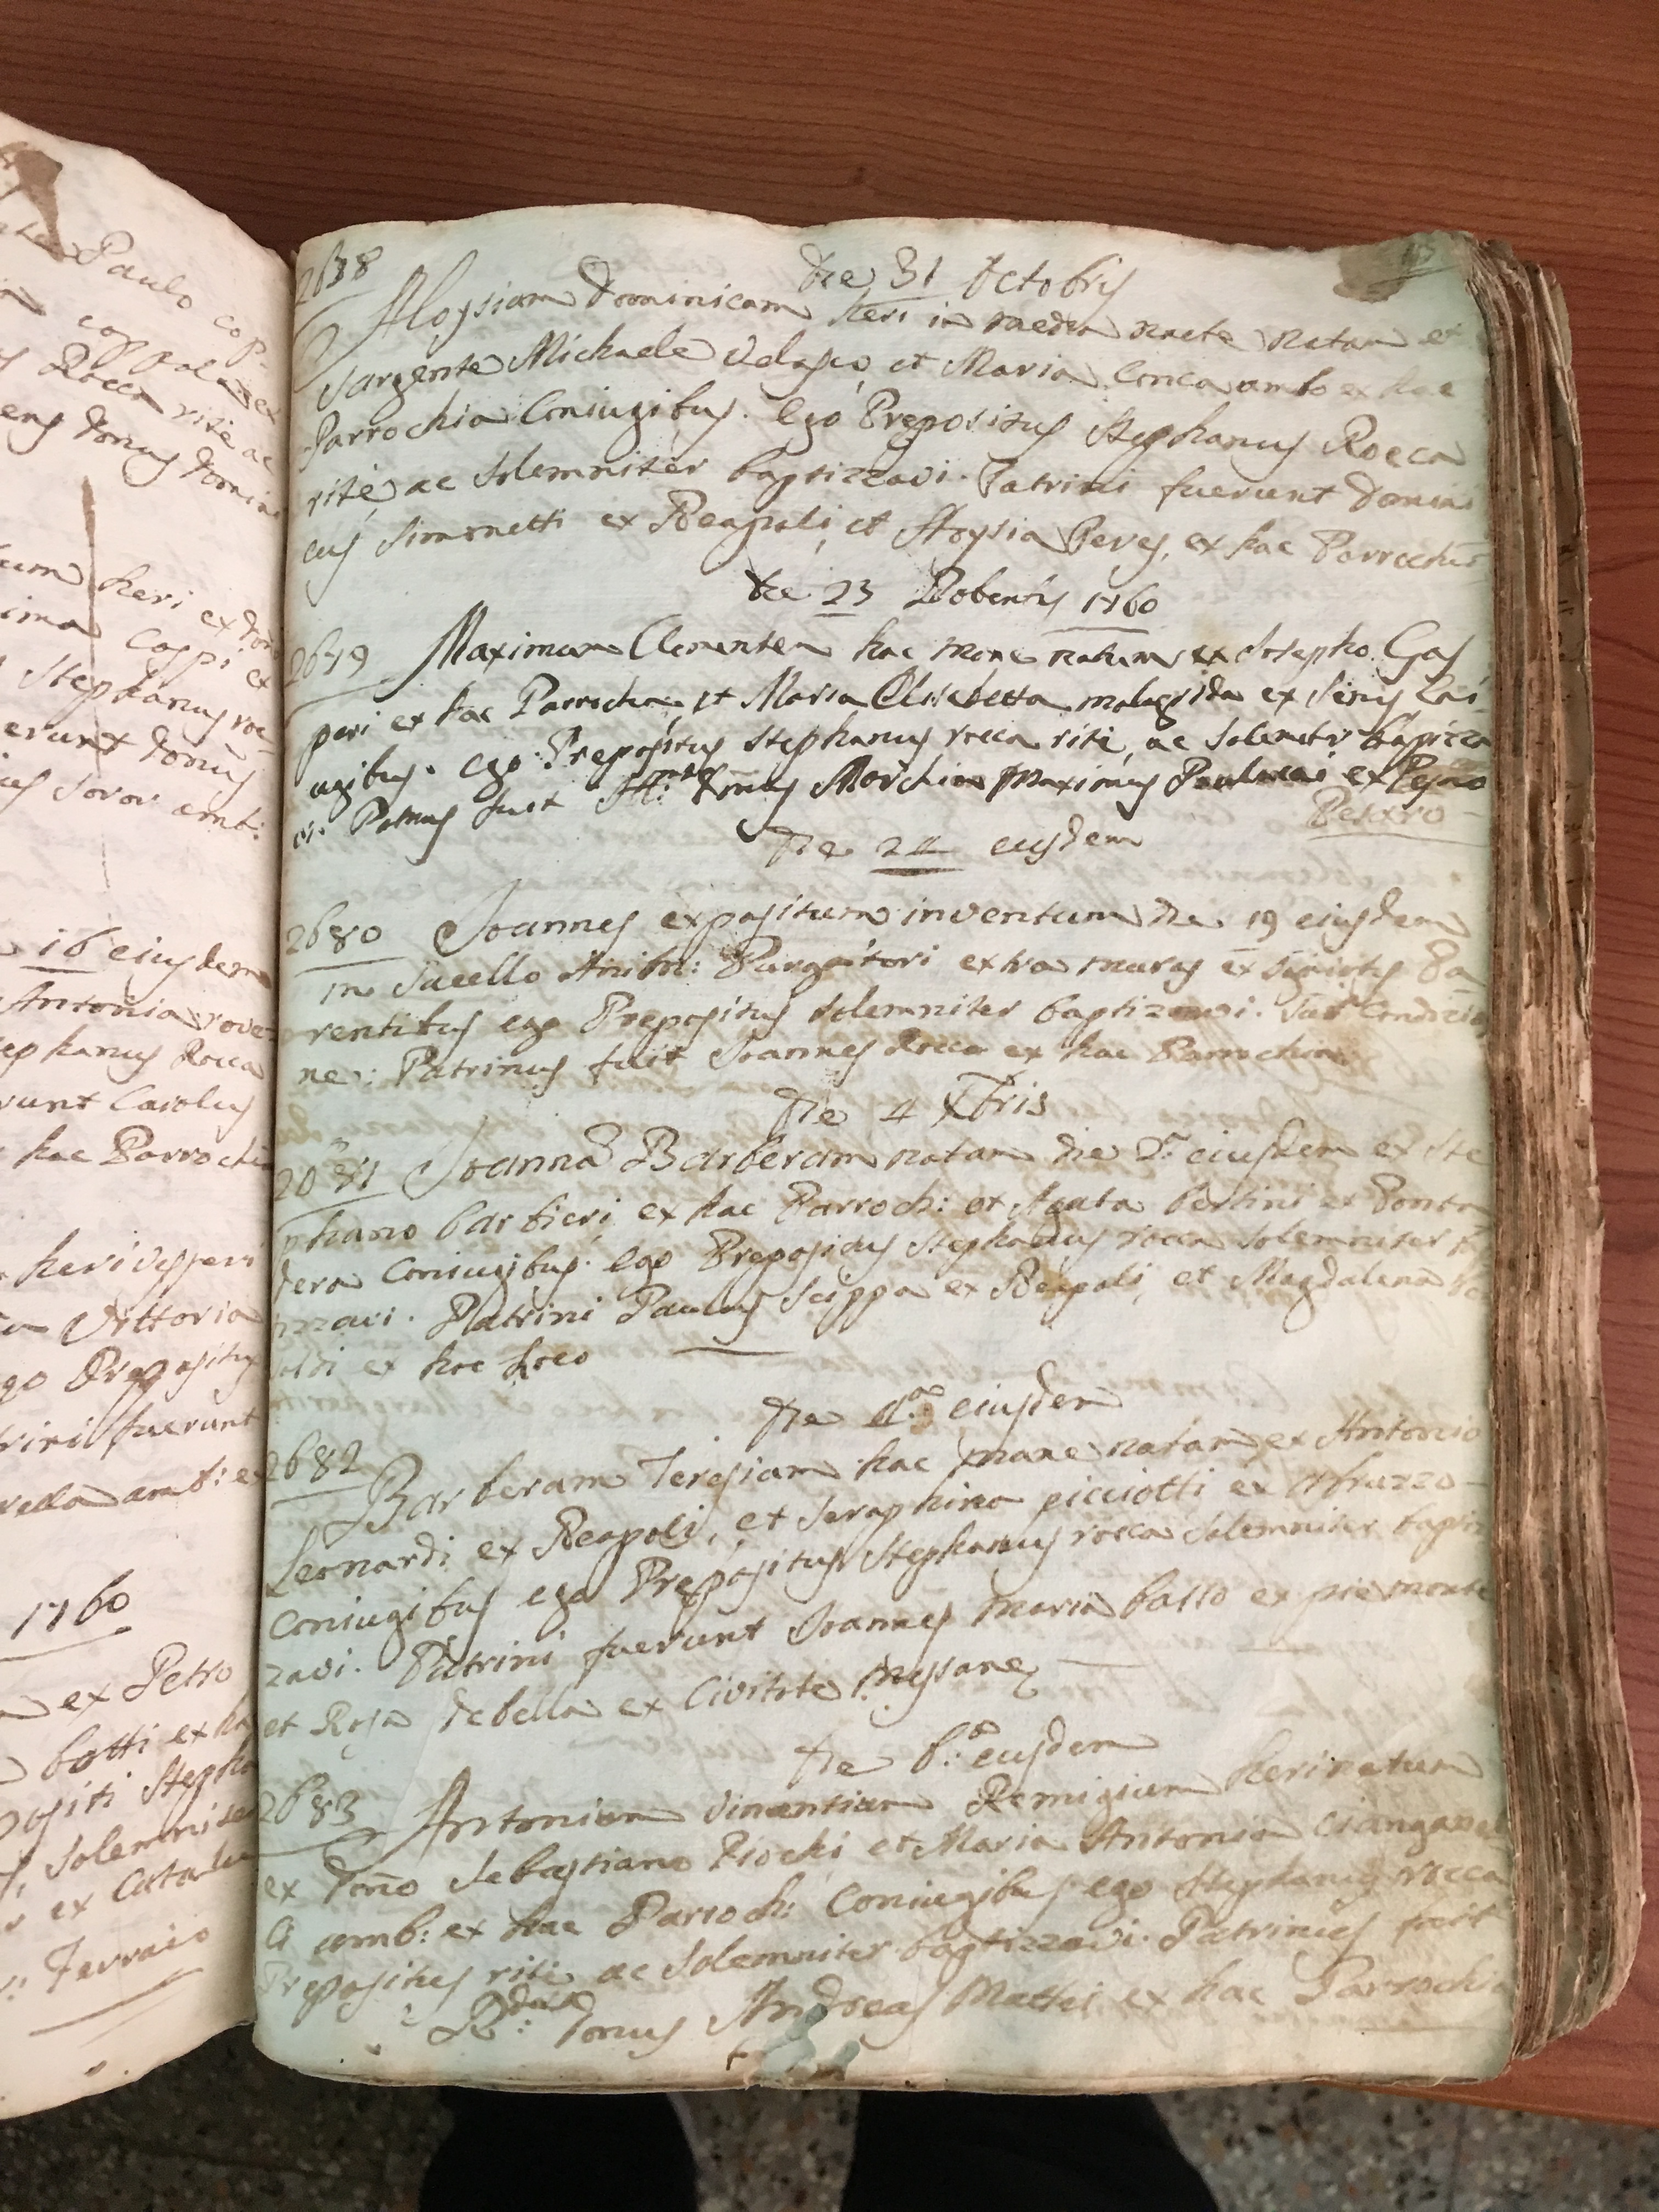 Paulo cop-
coppola ex
Rocca rite ac
ens Donus Domini
heri ex
Coppi ex
Stephanus roc
erunt Donus
soror amb:
16 eiusdem
Antonia rove
ephanus Rocca
runt Carolus
hac Parrochi
heri vesperi
Vittoria
go Prepositus
trini fuerunt
rella amb: ex
1760
ex Petro
botti ex ha
positi Stepha
solemniter
ex Cata
Terraio
2638
Die 31 Octobris
Aloysiam Dominicam heri in media nocte natam et
Sargente Michaele Velasco, et Maria Conca ambo ex hac
Parrochia Coniugibus. Ego Prepositus Stephanus Rocca
rite, ac solemniter baptizzavi. Patrini fuerunt Domini
cus Simonetti ex Neapoli, et Aloysia Peres, ex hac Parrochia
Die 23 Nobembris 1760
2679 Maximum Clementem hac mane natum ex Josepho Gas
peri ex hac Parrochia, et Maria Elisebetta malagrida ex Senis Coi
ugibus. Ego Prepositus Stephanus rocca rite, ac solemniter bapizza
vi. Patrinus fuit Ill: Donus Marchio Maximus Paulucci ex
Pesaro
Die 24 eiusdem
2680 Joannes expositum inventum Die 19 eiusdem
in Sacello Anibu: Purgatori extra muros ex Pa
rentibus ego Prepositus solemniter baptizzavi. Sub Condizio
ne: Patrinus fuit Joannes Rocca ex hac Parrochia
Die 4 Xbris
2681 Joanna Barberam natam Die 2: eiusdem ex Ste
phano barbieri ex hac Parroch: et Agata bertini ex Pontre
dera Coniugibus. Ego Prepositus Stephanus rocca solemniter b
izzavi. Patrini Paulus Scippa ex Neapoli, et Magdalena
oldi ex hac Loco
Die 4: eiusdem
2682
Barberam Teresiam hac mane natam ex Antonio
Leonardi ex Neapoli, et Seraphina picciotti ex Abruzzo
Coniugibus ego Prepositus Stephanus rocca solemniter baptiz
zavi. Patrini fuerunt Joannes Maria basso ex piemonte
et Rosa debella ex Civitate Messane
Die 6: eiusdem
2683 Antonium Vinantium Remigium heri natum
ex Dono Sebastiano Piochi et Maria Antonia Cianganel
li amb: ex hac Parroch: Coniugibus ego Stephanus rocca
Prepositus rite ac solemniter baptizzavi. Patrinus fuit
R: Donus Andreas Mattei ex hac Parrochia